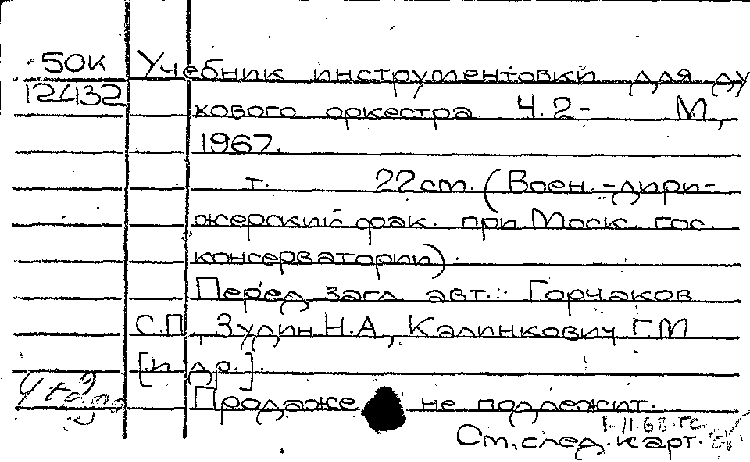 50К Учебник инструментовки для ду
12432
хового оркестра Ч.2- М,
1967.
т. 22см. (Воен.-дири-
жерский фак. при Моск. гос.
консерватории)
Перед загл. авт.: Горчаков
С.П., Зудин Н.А, Калинкович Г.М
[и др.]
Продаже не подлежит.
См. след. карт.